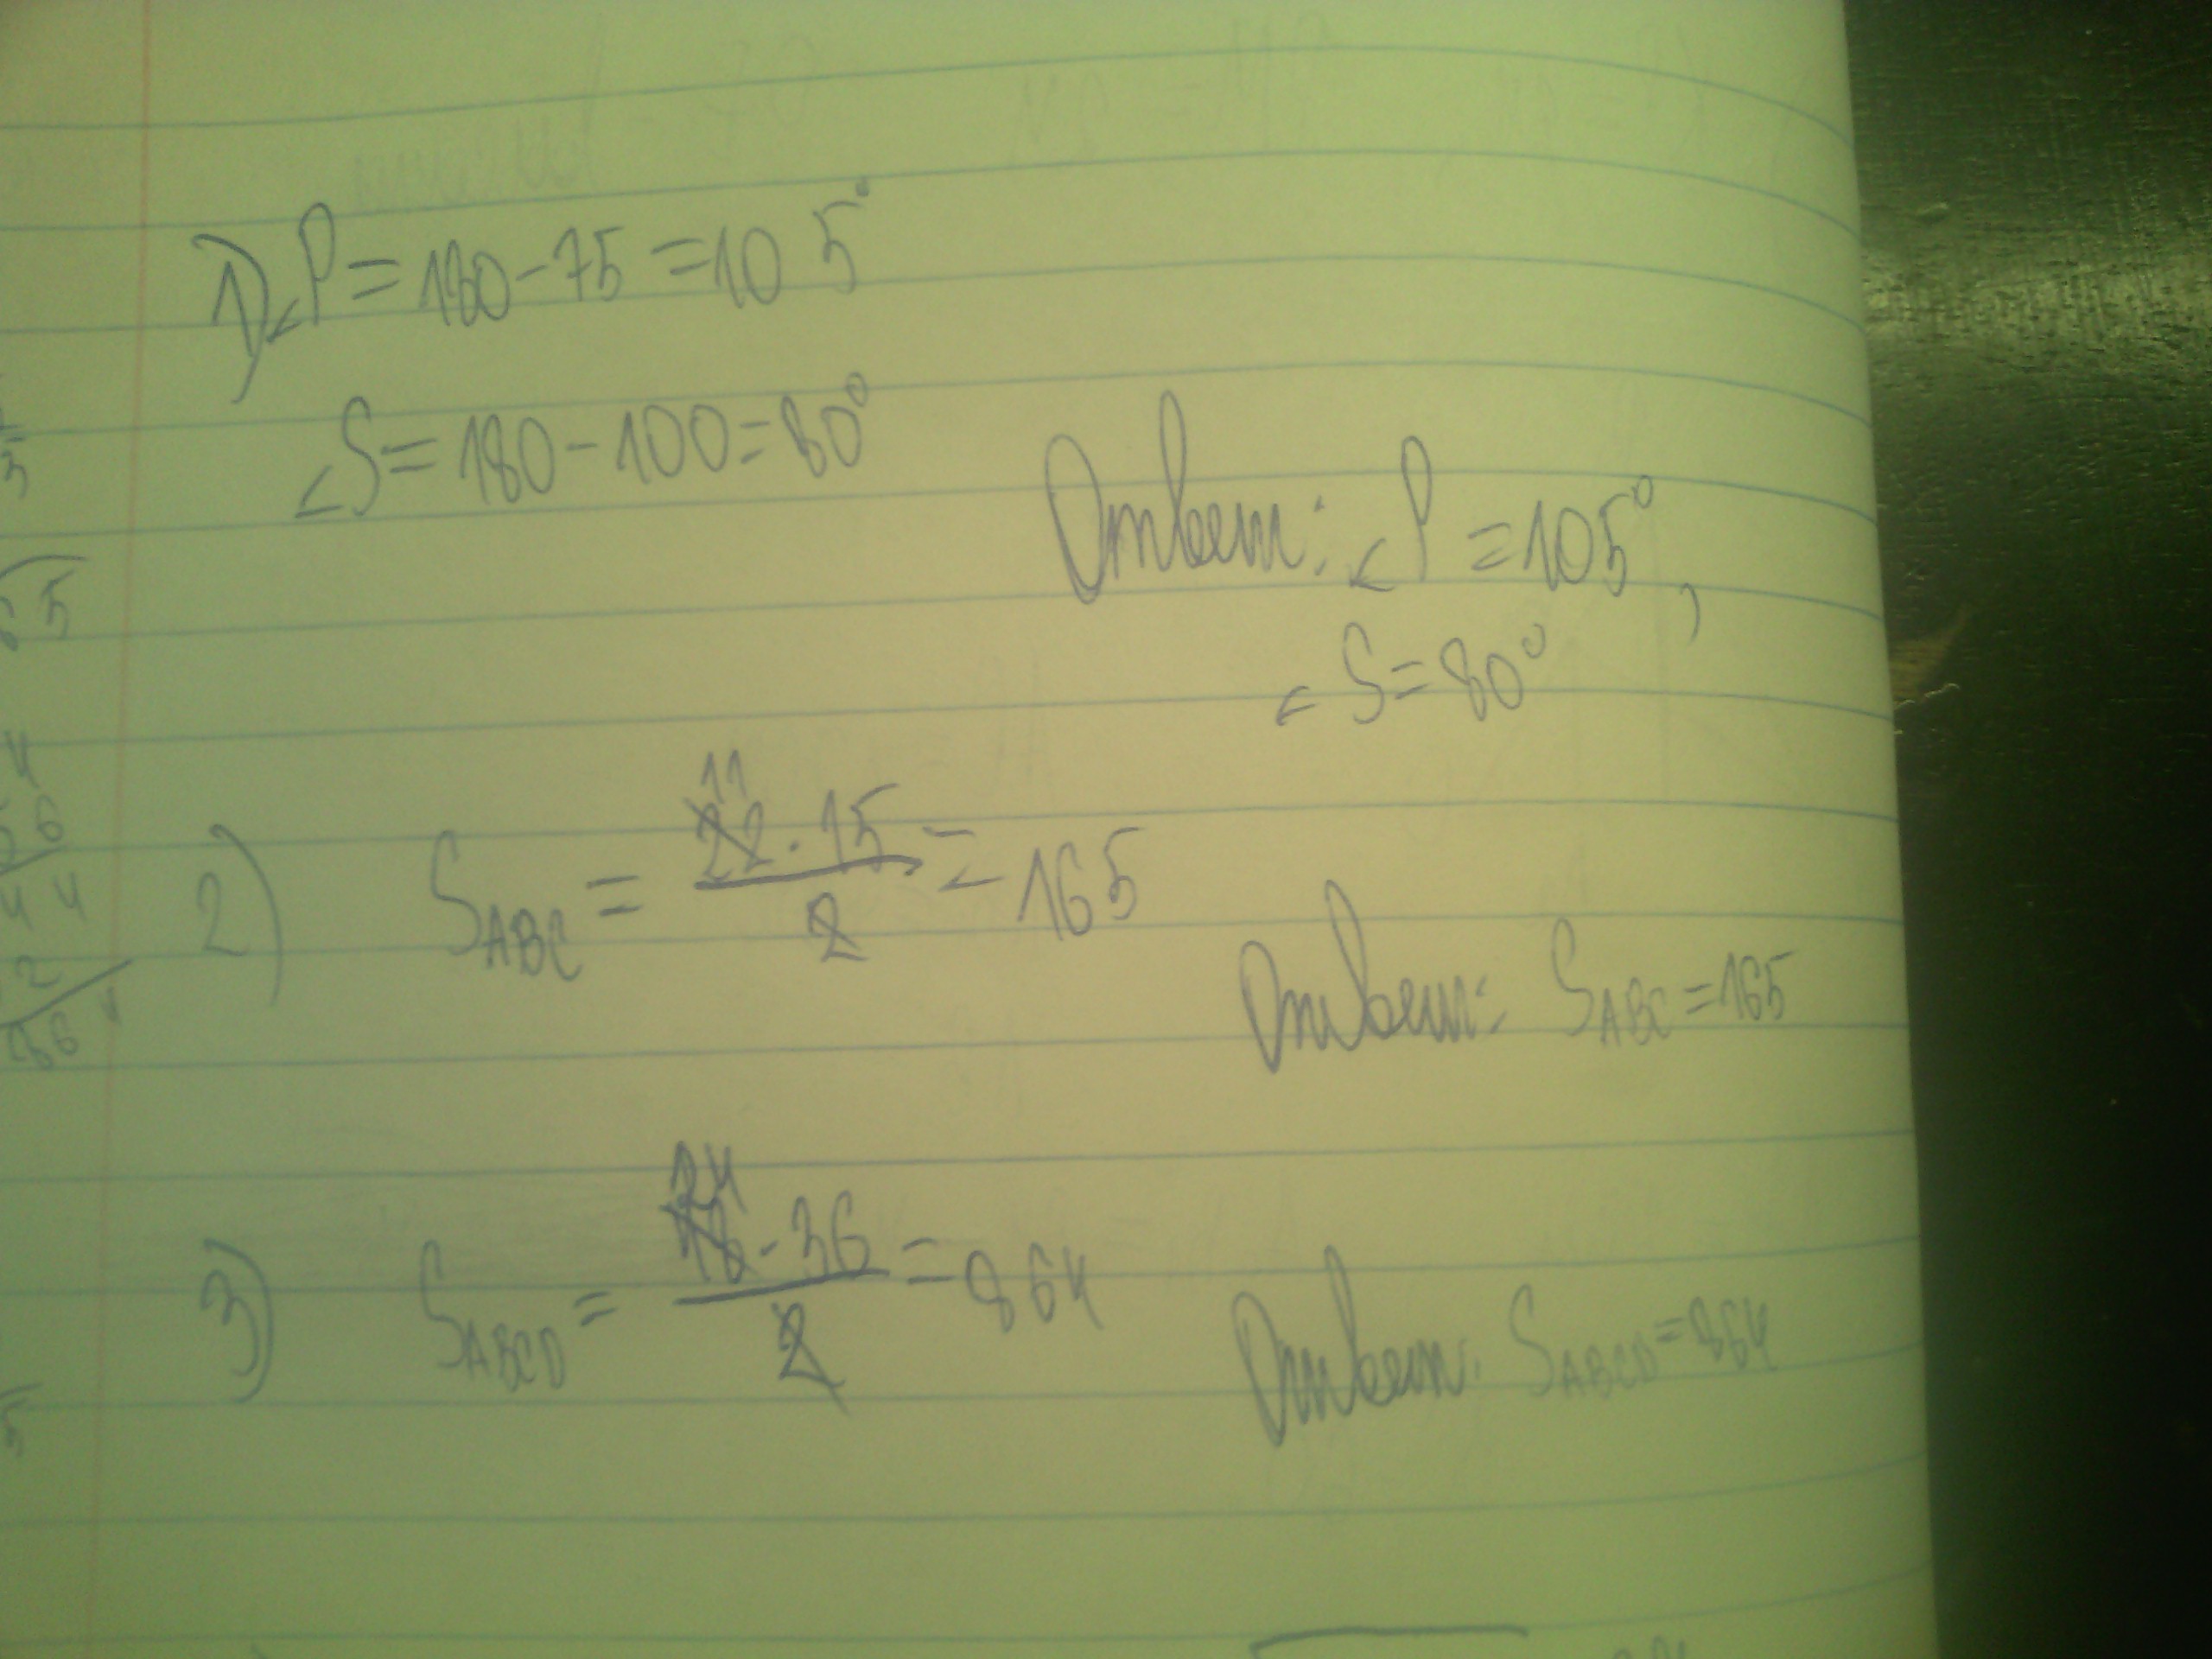 1) ∠P = 180 - 75 = 105°
∠S = 180 - 100 = 80°
Ответ: ∠P = 105°,
∠S = 80°
11
2) S_ABC = 22 · 15 / 2 = 165
Ответ: S_ABC = 165
24
3) S_ABCD = 48 · 36 / 2 = 864
Ответ: S_ABCD = 864